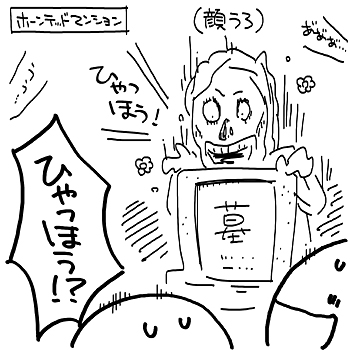 ホーンテッドマンション
(顔うろ)
おぉぉ…
ひゃっ
ほう!
ひゃっ
ほう!?
墓